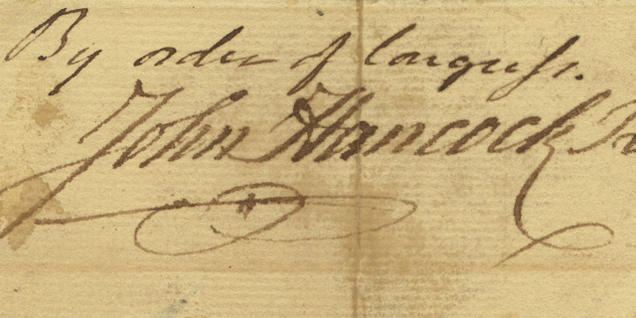 By order of Congress.
John Hancock